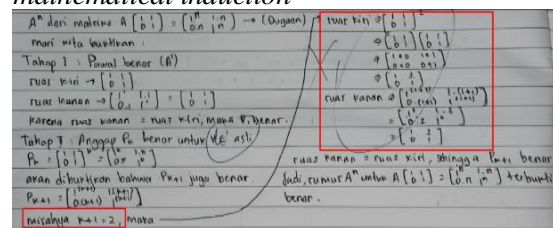 mathematical induction
Aⁿ dari matriks A [1 1; 0 1] = [1ⁿ 1·n; 0·n 1ⁿ] → (Dugaan)
mari kita buktikan.
Tahap 1 : P awal benar (A¹)
ruas kiri → [1 1; 0 1]
ruas kanan → [1¹ 1·1; 0·1 1¹] = [1 1; 0 1]
karena ruas kanan = ruas kiri, maka P₁ benar.
Tahap II : Anggap Pₖ benar untuk k ∈ asli
Pₖ = [1 1; 0 1]ᵏ = [1ᵏ 1·k; 0·k 1ᵏ]
akan dibuktikan bahwa Pₖ₊₁ juga benar.
Pₖ₊₁ = [1⁽ᵏ⁺¹⁾ 1·(k+1); 0·(k+1) 1⁽ᵏ⁺¹⁾]
misalnya k+1 = 2, maka
ruas kiri → [1 1; 0 1]²
→ [1 1; 0 1] [1 1; 0 1]
→ [1+0 1+1; 0+0 0+1]
→ [1 2; 0 1]
ruas kanan → [1⁽ᵏ⁺¹⁾ 1·(k+1); 0·(k+1) 1⁽ᵏ⁺¹⁾]
= [1² 1·2; 0·2 1²]
= [1 2; 0 1]
ruas kanan = ruas kiri, sehingga Pₖ₊₁ benar
Jadi, rumus Aⁿ untuk A [1 1; 0 1] = [1ⁿ 1·n; 0·n 1ⁿ] terbukti
benar.